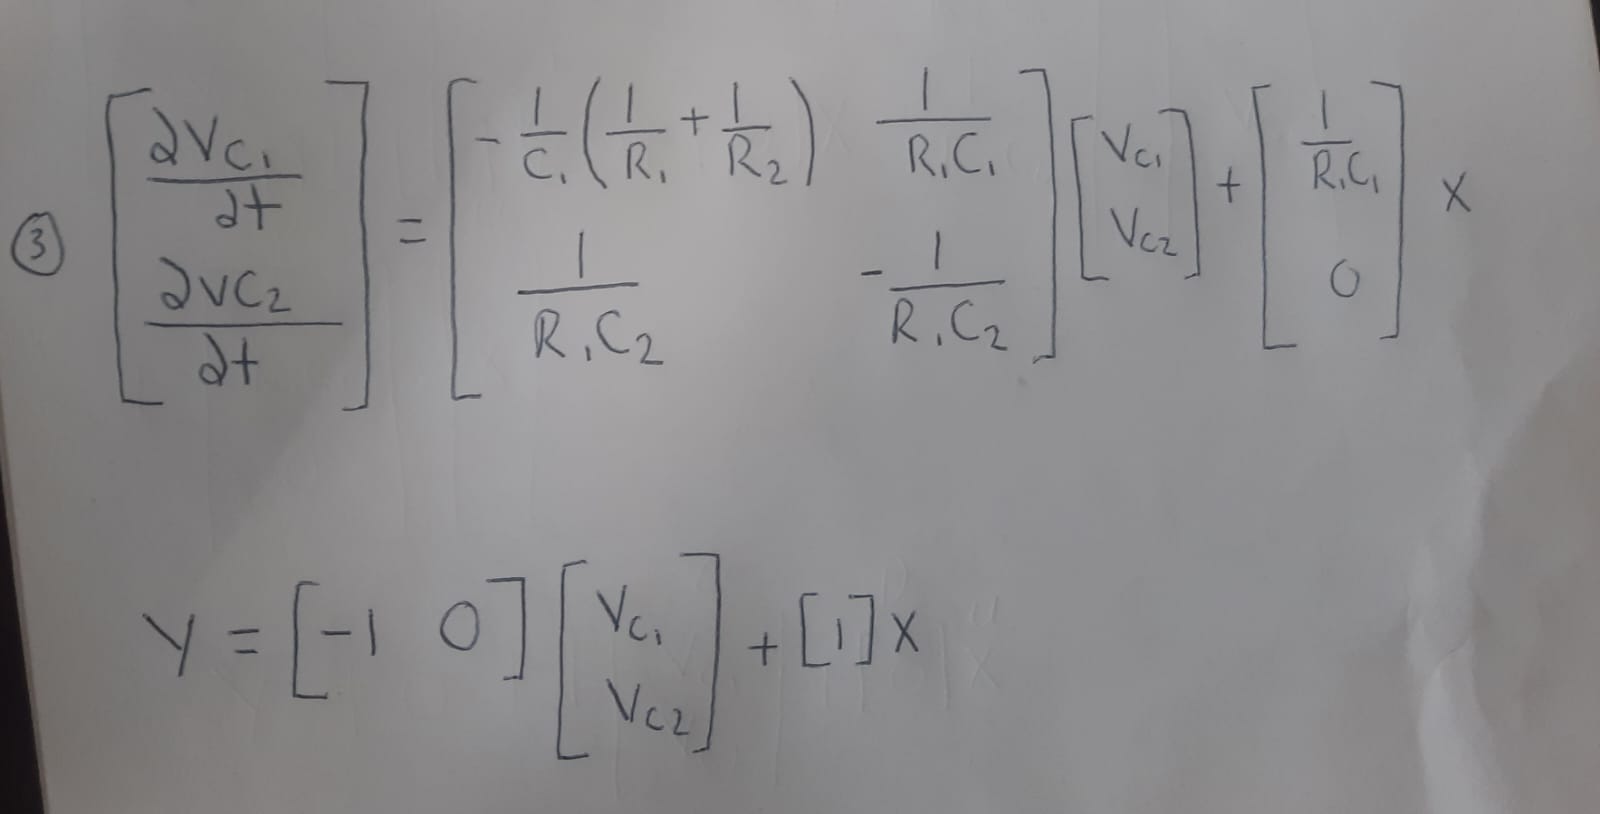 ③ [∂V_C₁/∂t ; ∂VC₂/∂t] = [-1/C₁(1/R₁ + 1/R₂)  1/R₁C₁ ; 1/R₁C₂  -1/R₁C₂] [V_C₁ ; V_C₂] + [1/R₁C₁ ; 0] X
Y = [-1  0] [V_C₁ ; V_C₂] + [1] X